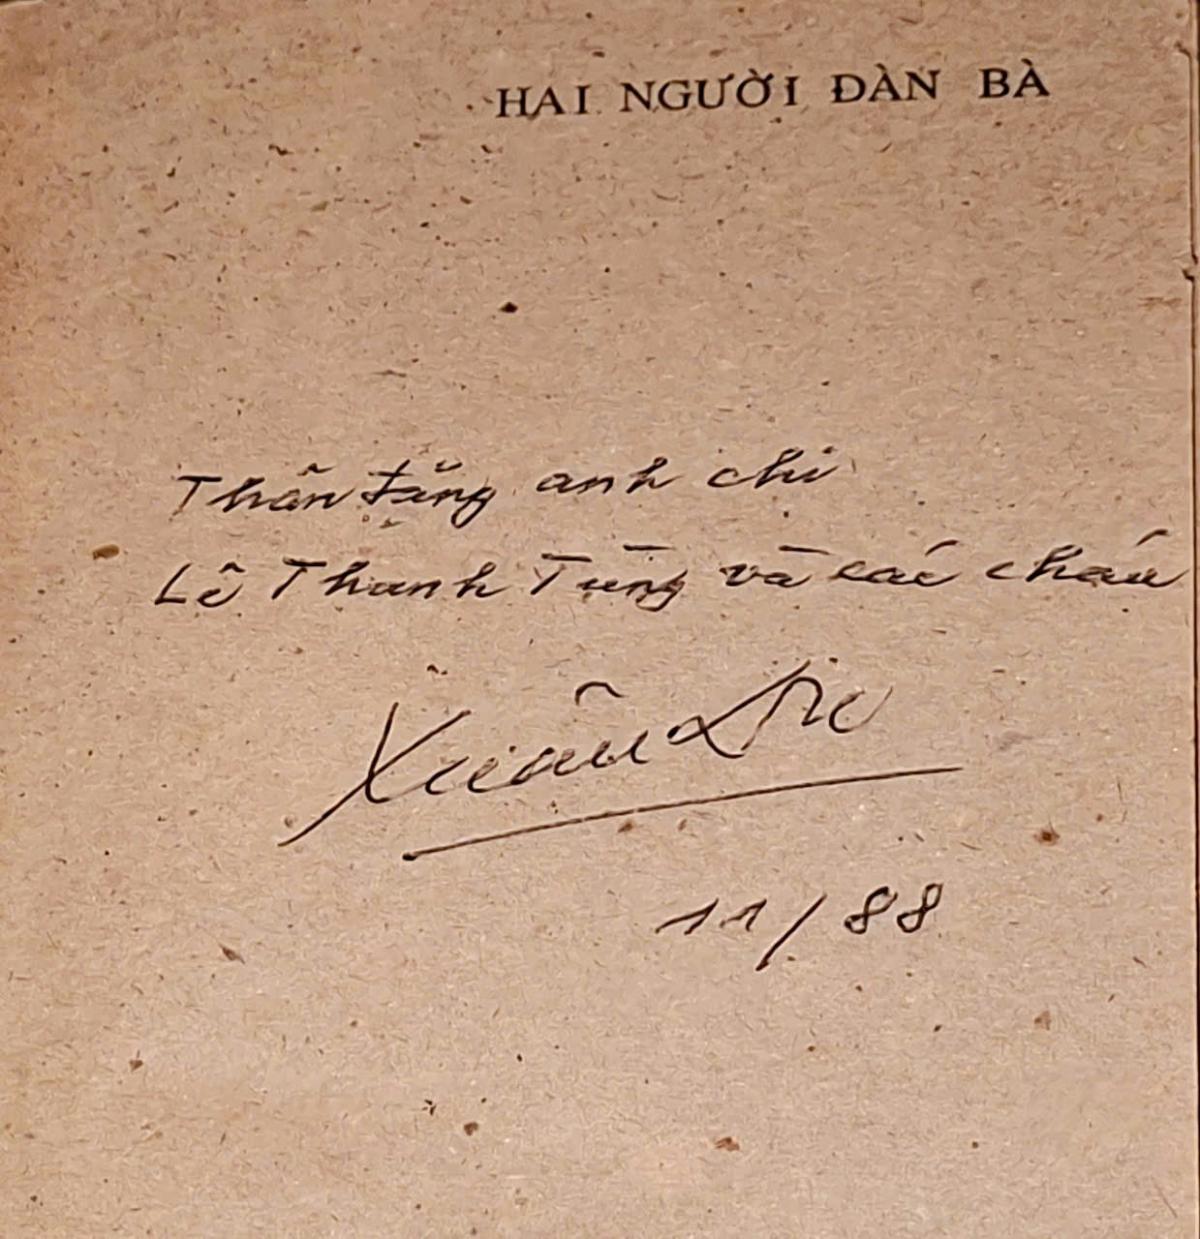 HAI NGƯỜI ĐÀN BÀ
Thân tặng anh chị
Lê Thanh Tùng và các cháu
Xuân
11/88